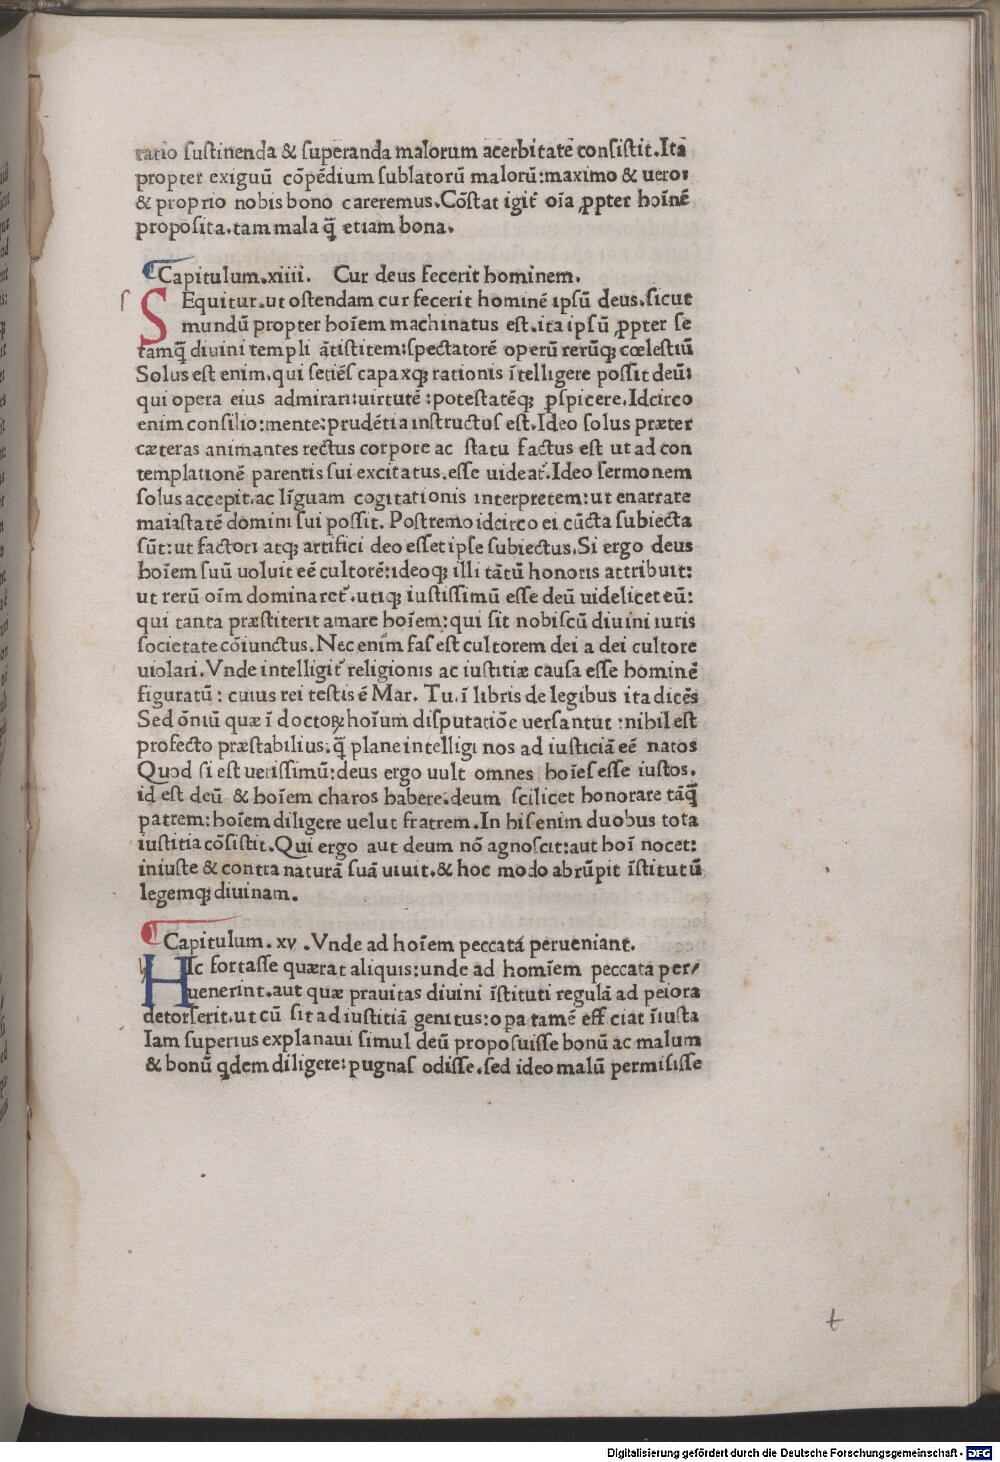 ratio sustinenda & superanda malorum acerbitate consistit. Ita
propter exiguū cōpēdium sublatorū malorū: maximo & uero:
& proprio nobis bono careremus. Cōstat igit̄ oīa ꝓpter hoīnē
proposita. tam mala q̄ etiam bona.
Capitulum. xiiii. Cur deus fecerit hominem.
SEquitur. ut ostendam cur fecerit hominē ipsū deus. sicut
mundū propter hoīem machinatus est. ita ipsū ꝓpter se
tamq̄ diuini templi ātistitem: spectatorē operū rerūqꝫ cœlestiū
Solus est enim. qui setiēs capaxqꝫ rationis ītelligere possit deū:
qui opera eius admirari: uirtutē: potestatēqꝫ ꝑspicere. Idcirco
enim consilio: mente: prudētia instructus est. Ideo solus præter
cæteras animantes rectus corpore ac statu factus est ut ad con
templationē parentis sui excitatus. esse uideat̄. Ideo sermonem
solus accepit. ac līguam cogitationis interpretem: ut enarrare
maiastatē domini sui possit. Postremo idcirco ei cūcta subiecta
sūt: ut factori atqꝫ artifici deo esset ipse subiectus. Si ergo deus
hoīem suū uoluit eē cultorē: ideoqꝫ illi tātū honoris attribuit:
ut rerū oīm dominaret̄. utiqꝫ iustissimū esse deū uidelicet eū:
qui tanta præstiterit amare hoīem: qui sit nobiscū diuini iuris
societate cōiunctus. Nec enim fas est cultorem dei a dei cultore
uiolari. Vnde intelligit̄ religionis ac iustitiæ causa esse hominē
figuratū: cuius rei testis ē Mar. Tu. ī libris de legibus ita dicēs
Sed ōniū quæ ī doctoꝝ hoīum disputatiōe uersantur: nihil est
profecto præstabilius: q̄ plane intelligi nos ad iusticiā eē natos
Quod si est uerissimū: deus ergo uult omnes hoīes esse iustos.
id est deū & hoīem charos habere: deum scilicet honorare tāq̄
patrem: hoīem diligere uelut fratrem. In his enim duobus tota
iustitia cōsistit. Qui ergo aut deum nō agnoscit: aut hoī nocet:
iniuste & contra naturā suā uiuit. & hoc modo abrūpit īstitutū
legemqꝫ diuinam.
Capitulum. xv. Vnde ad hoīem peccata perueniant.
HIc fortasse quærat aliquis: unde ad homīem peccata per/
uenerint. aut quæ prauitas diuini īstituti regulā ad peiora
detorserit. ut cū sit ad iustitiā genitus: opa tamē efficiat īiusta
Iam superius explanaui simul deū proposuisse bonū ac malum
& bonū qdem diligere: pugnas odisse. sed ideo malū permisisse
t
Digitalisierung gefördert durch die Deutsche Forschungsgemeinschaft - DFG